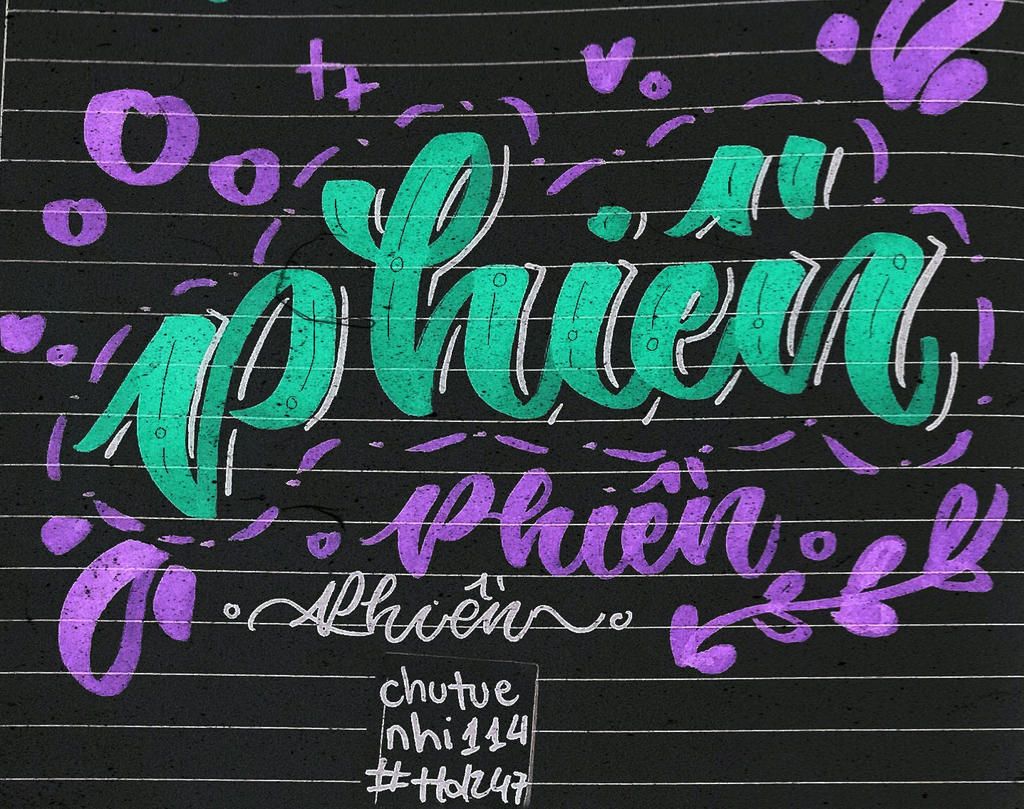 phiền
phiền
phiền
chutue
nhi114